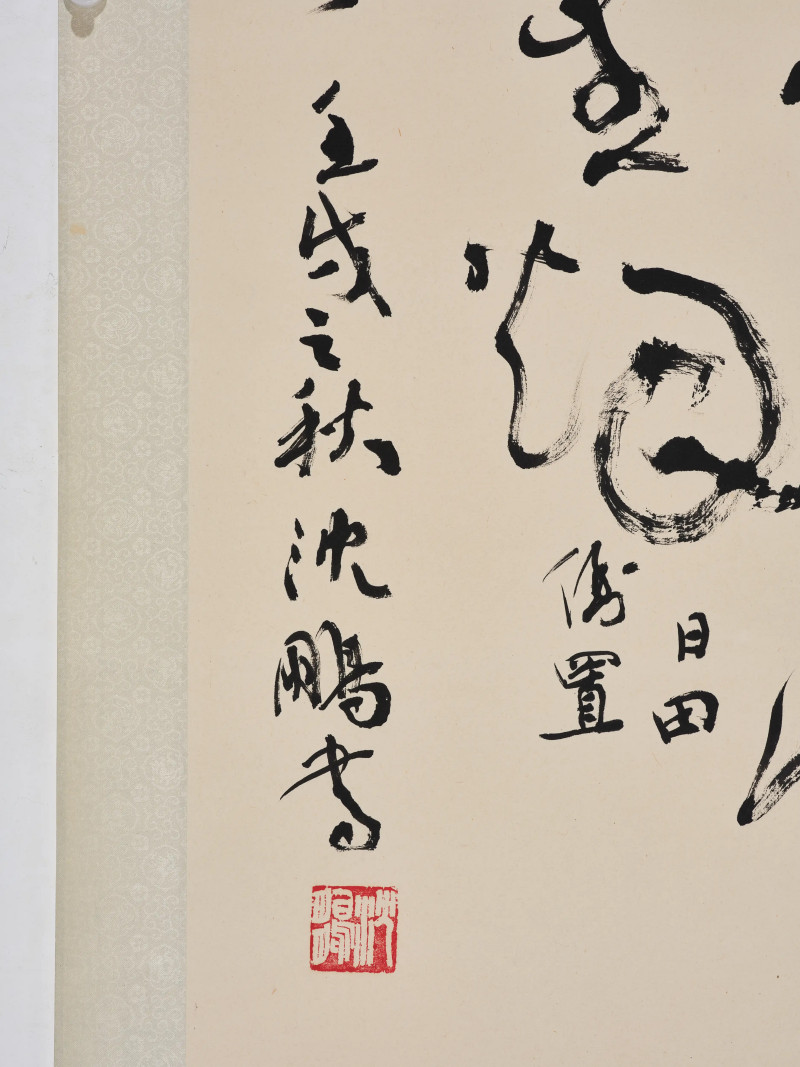 生烟
日田
倒置
壬戌之秋沈鵬書
沈鵬